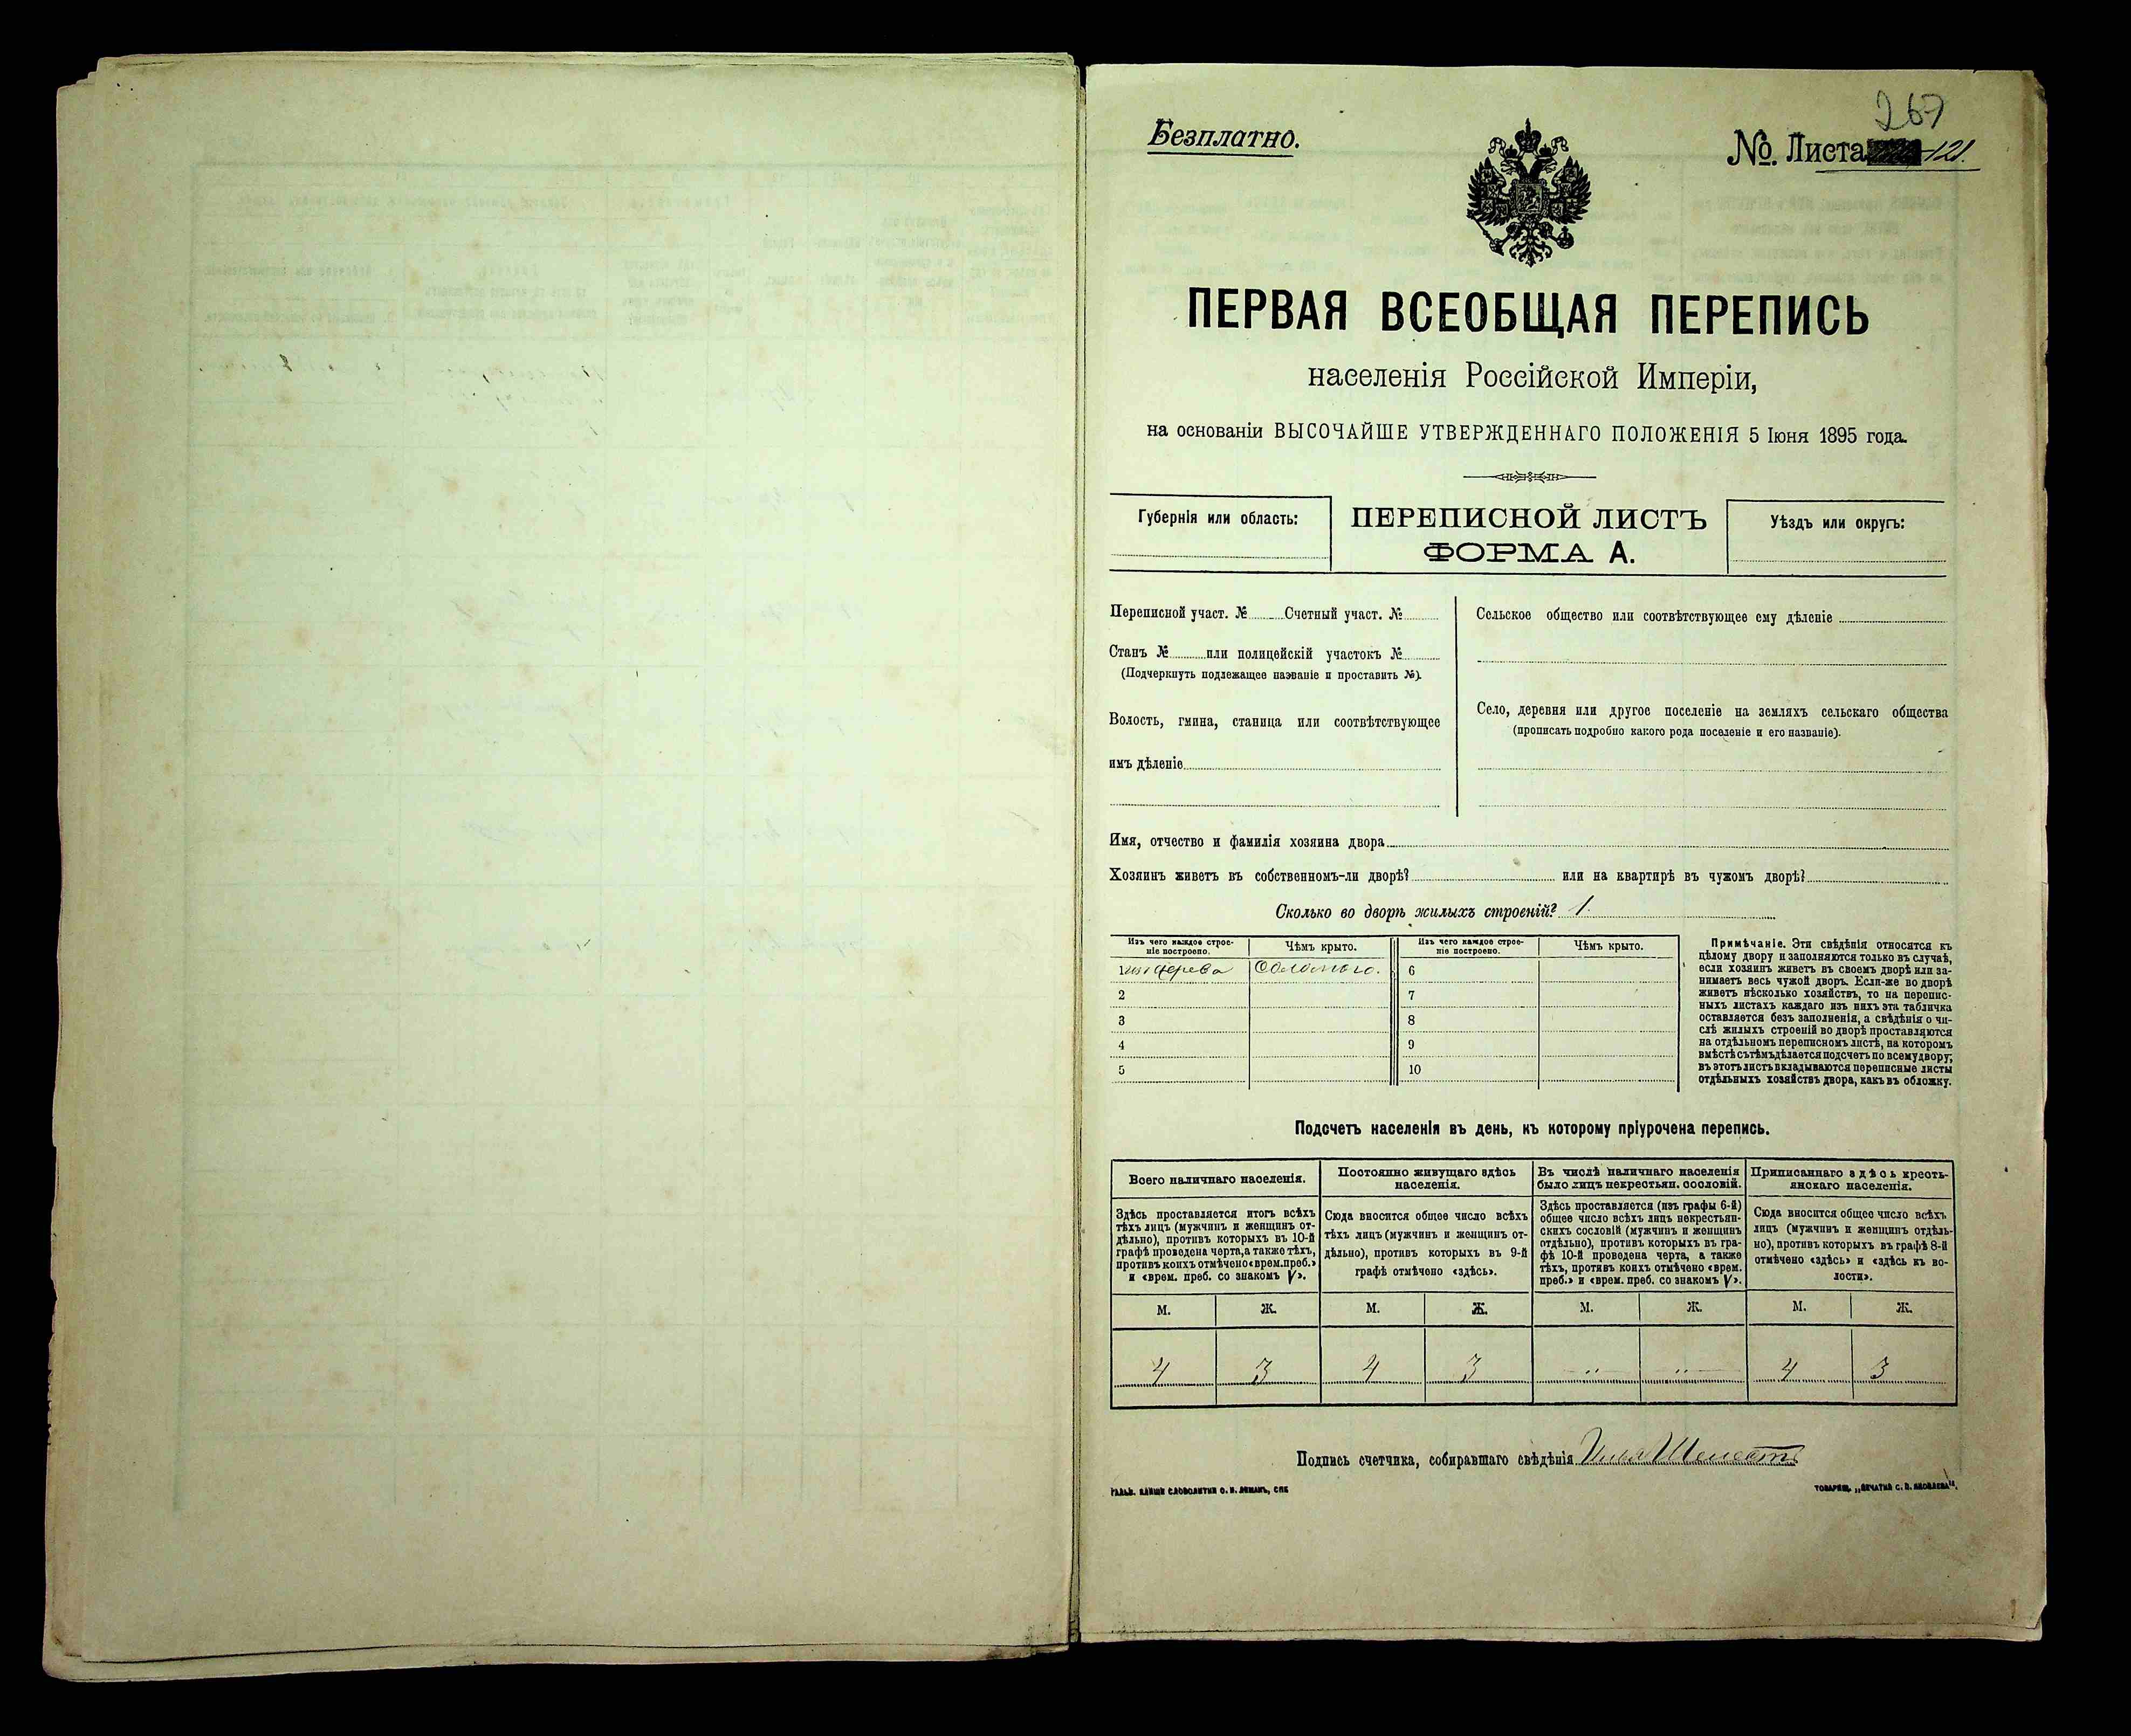 267
Безплатно.
№. Листа 121.
ПЕРВАЯ ВСЕОБЩАЯ ПЕРЕПИСЬ
населенія Россійской Имперіи,
на основаніи ВЫСОЧАЙШЕ УТВЕРЖДЕННАГО ПОЛОЖЕНІЯ 5 Іюня 1895 года.
Губернія или область:
ПЕРЕПИСНОЙ ЛИСТЪ
ФОРМА А.
Уѣздъ или округъ:
Переписной участ. № Счетный участ. №
Станъ № или полицейскій участокъ №
(Подчеркнуть подлежащее названіе и проставить №).
Волость, гмина, станица или соотвѣтствующее
имъ дѣленіе
Сельское общество или соотвѣтствующее ему дѣленіе
Село, деревня или другое поселеніе на земляхъ сельскаго общества
(прописать подробно какого рода поселеніе и его названіе).
Имя, отчество и фамилія хозяина двора
Хозяинъ живетъ въ собственномъ-ли дворѣ? или на квартирѣ въ чужомъ дворѣ?
Сколько во дворѣ жилыхъ строеній? 1.
Изъ чего каждое строе-
ніе построено.
Чѣмъ крыто.
Изъ чего каждое строе-
ніе построено.
Чѣмъ крыто.
1 изъ дерева Соломою. 6
2 7
3 8
4 9
5 10
Примѣчаніе. Эти свѣдѣнія относятся къ
цѣлому двору и заполняются только въ случаѣ,
если хозяинъ живетъ въ своемъ дворѣ или за-
нимаетъ весь чужой дворъ. Если-же во дворѣ
живетъ нѣсколько хозяйствъ, то на перепис-
ныхъ листахъ каждаго изъ нихъ эта табличка
оставляется безъ заполненія, а свѣдѣнія о чи-
слѣ жилыхъ строеній во дворѣ проставляются
на отдѣльномъ переписномъ листѣ, на которомъ
вмѣстѣ съ тѣмъ дѣлается подсчетъ по всему двору;
въ этотъ листъ вкладываются переписные листы
отдѣльныхъ хозяйствъ двора, какъ въ обложку.
Подсчетъ населенія въ день, къ которому пріурочена перепись.
Всего наличнаго населенія.
Здѣсь проставляется итогъ всѣхъ
тѣхъ лицъ (мужчинъ и женщинъ от-
дѣльно), противъ которыхъ въ 10-й
графѣ проведена черта, а также тѣхъ,
противъ коихъ отмѣчено «врем. преб.»
и «врем. преб. со знакомъ V».
Постоянно живущаго здѣсь
населенія.
Сюда вносится общее число всѣхъ
тѣхъ лицъ (мужчинъ и женщинъ от-
дѣльно), противъ которыхъ въ 9-й
графѣ отмѣчено «здѣсь».
Въ числѣ наличнаго населенія
было лицъ некрестьян. сословій.
Здѣсь проставляется (изъ графы 6-й)
общее число всѣхъ лицъ некрестьян-
скихъ сословій (мужчинъ и женщинъ
отдѣльно), противъ которыхъ въ гра-
фѣ 10-й проведена черта, а также
тѣхъ, противъ коихъ отмѣчено «врем.
преб.» и «врем. преб. со знакомъ V».
Приписаннаго здѣсь кресть-
янскаго населенія.
Сюда вносится общее число всѣхъ
лицъ (мужчинъ и женщинъ отдѣль-
но), противъ которыхъ въ графѣ 8-й
отмѣчено «здѣсь» и «здѣсь къ во-
лости».
М. Ж. М. Ж. М. Ж. М. Ж.
4 3 4 3 4 3
Подпись счетчика, собиравшаго свѣдѣнія Илья Шелестъ
ТОВАРИЩ. „ПЕЧАТНЯ С. П. ЯКОВЛЕВА“.